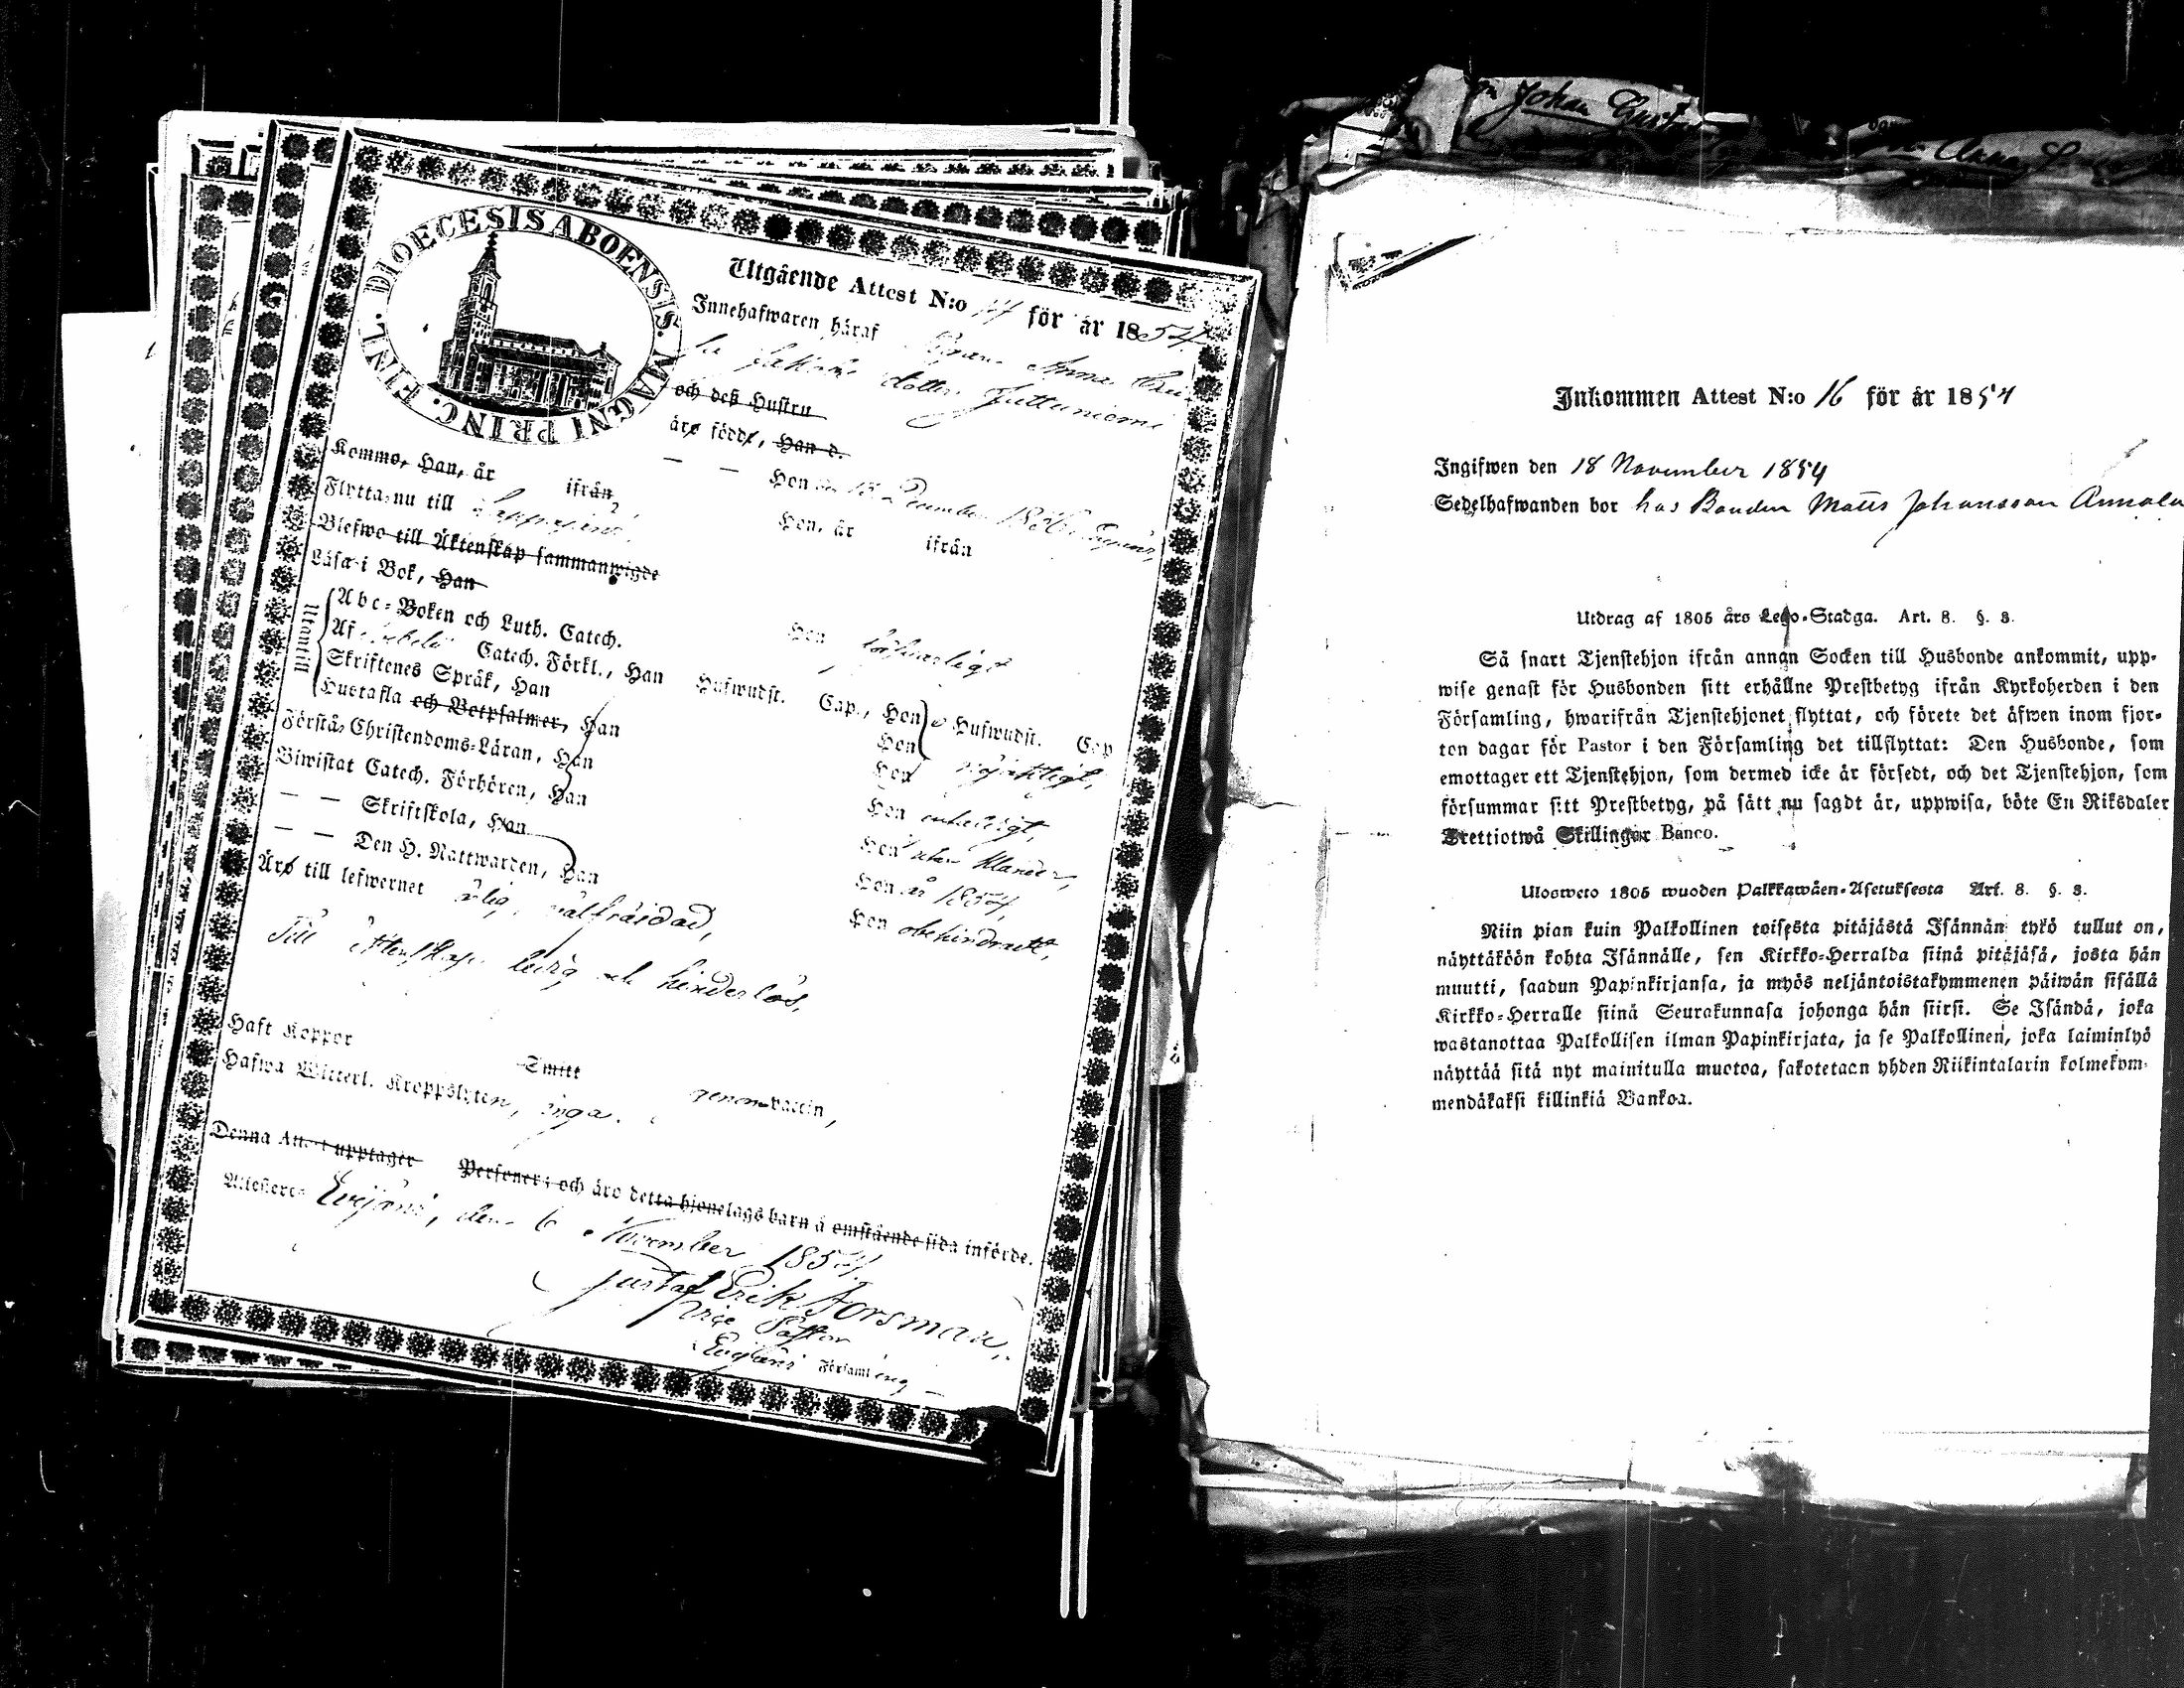 DIOECESIS ABOENSIS. MAGNI PRINC. FINL.
Utgående Attest N:o för år 1854
Innehafwaren häraf Pigan Anna
dotter
och deß Hustru
äro född, Han d.
— — Hon December
Komme, Han, år ifrån Hon, år ifrån
Flytta nu till
Blefwo till Äktenskap sammanwigde
Läsa i Bok, Han Hon
Utantill
Abc-Boken och Luth. Catech.
Af Catech. Förkl., Han Hufwudst. Cap., Hon Hufwudst. Cap
Skriftenes Språk, Han Hon
Hustafla och Botpsalmer, Han Hon
Förstå Christendoms-Läran, Han Hon enfaldigt,
Biwistat Catech. Förhören, Han Hon utan klander,
— — Skriftskola, Han Hon år 1854,
— — Den H. Nattwarden, Han Hon obehindradt.
Äro till lefwernet ärlig, wälfräjdad,
Till äktenskap ledig och hinderlös.
Haft Koppor Smitt genom vaccin,
Hafwa Witterl. Kroppslyten, inga.
Denna Attest upptager Personer; och äro detta hjonelags barn å omstående sida införde.
Attesteres Eurajoki, den 6 November 1854.
Gustaf Erik Forsman,
Vice Pastor
Församling
Johan Gust
Anna
Inkommen Attest N:o 16 för år 1854
Ingifwen den 18 November 1854
Sedelhafwanden bor hos Bonden Matts Johansson Annala
Utdrag af 1805 års Lego-Stadga. Art. 8. §. 8.
Så snart Tjenstehjon ifrån annan Socken till Husbonde ankommit, upp-
wise genast för Husbonden sitt erhållne Prestbetyg ifrån Kyrkoherden i den
Församling, hwarifrån Tjenstehjonet flyttat, och förete det äfwen inom fjor-
ton dagar för Pastor i den Församling det tillflyttat: Den Husbonde, som
emottager ett Tjenstehjon, som dermed icke är försedt, och det Tjenstehjon, som
försummar sitt Prestbetyg, på sätt nu sagdt är, uppwisa, böte En Riksdaler
Trettiotwå Skillingar Banco.
Ulosweto 1805 wuoden Palkkawäen-Asetuksesta Art. 8. §. 8.
Niin pian kuin Palkollinen toisesta pitäjästä Isännän tykö tullut on,
näyttäköön kohta Isännälle, sen Kirkko-Herralda siinä pitäjäsä, josta hän
muutti, saadun Papinkirjansa, ja myös neljäntoistakymmenen päiwän sisällä
Kirkko-Herralle siinä Seurakunnasa johonga hän siirsi. Se Isändä, joka
wastanottaa Palkollisen ilman Papinkirjata, ja se Palkollinen, joka laiminlyö
näyttää sitä nyt mainitulla muotoa, sakotetaan yhden Riikintalarin kolmekym-
mendäkaksi killinkiä Bankoa.